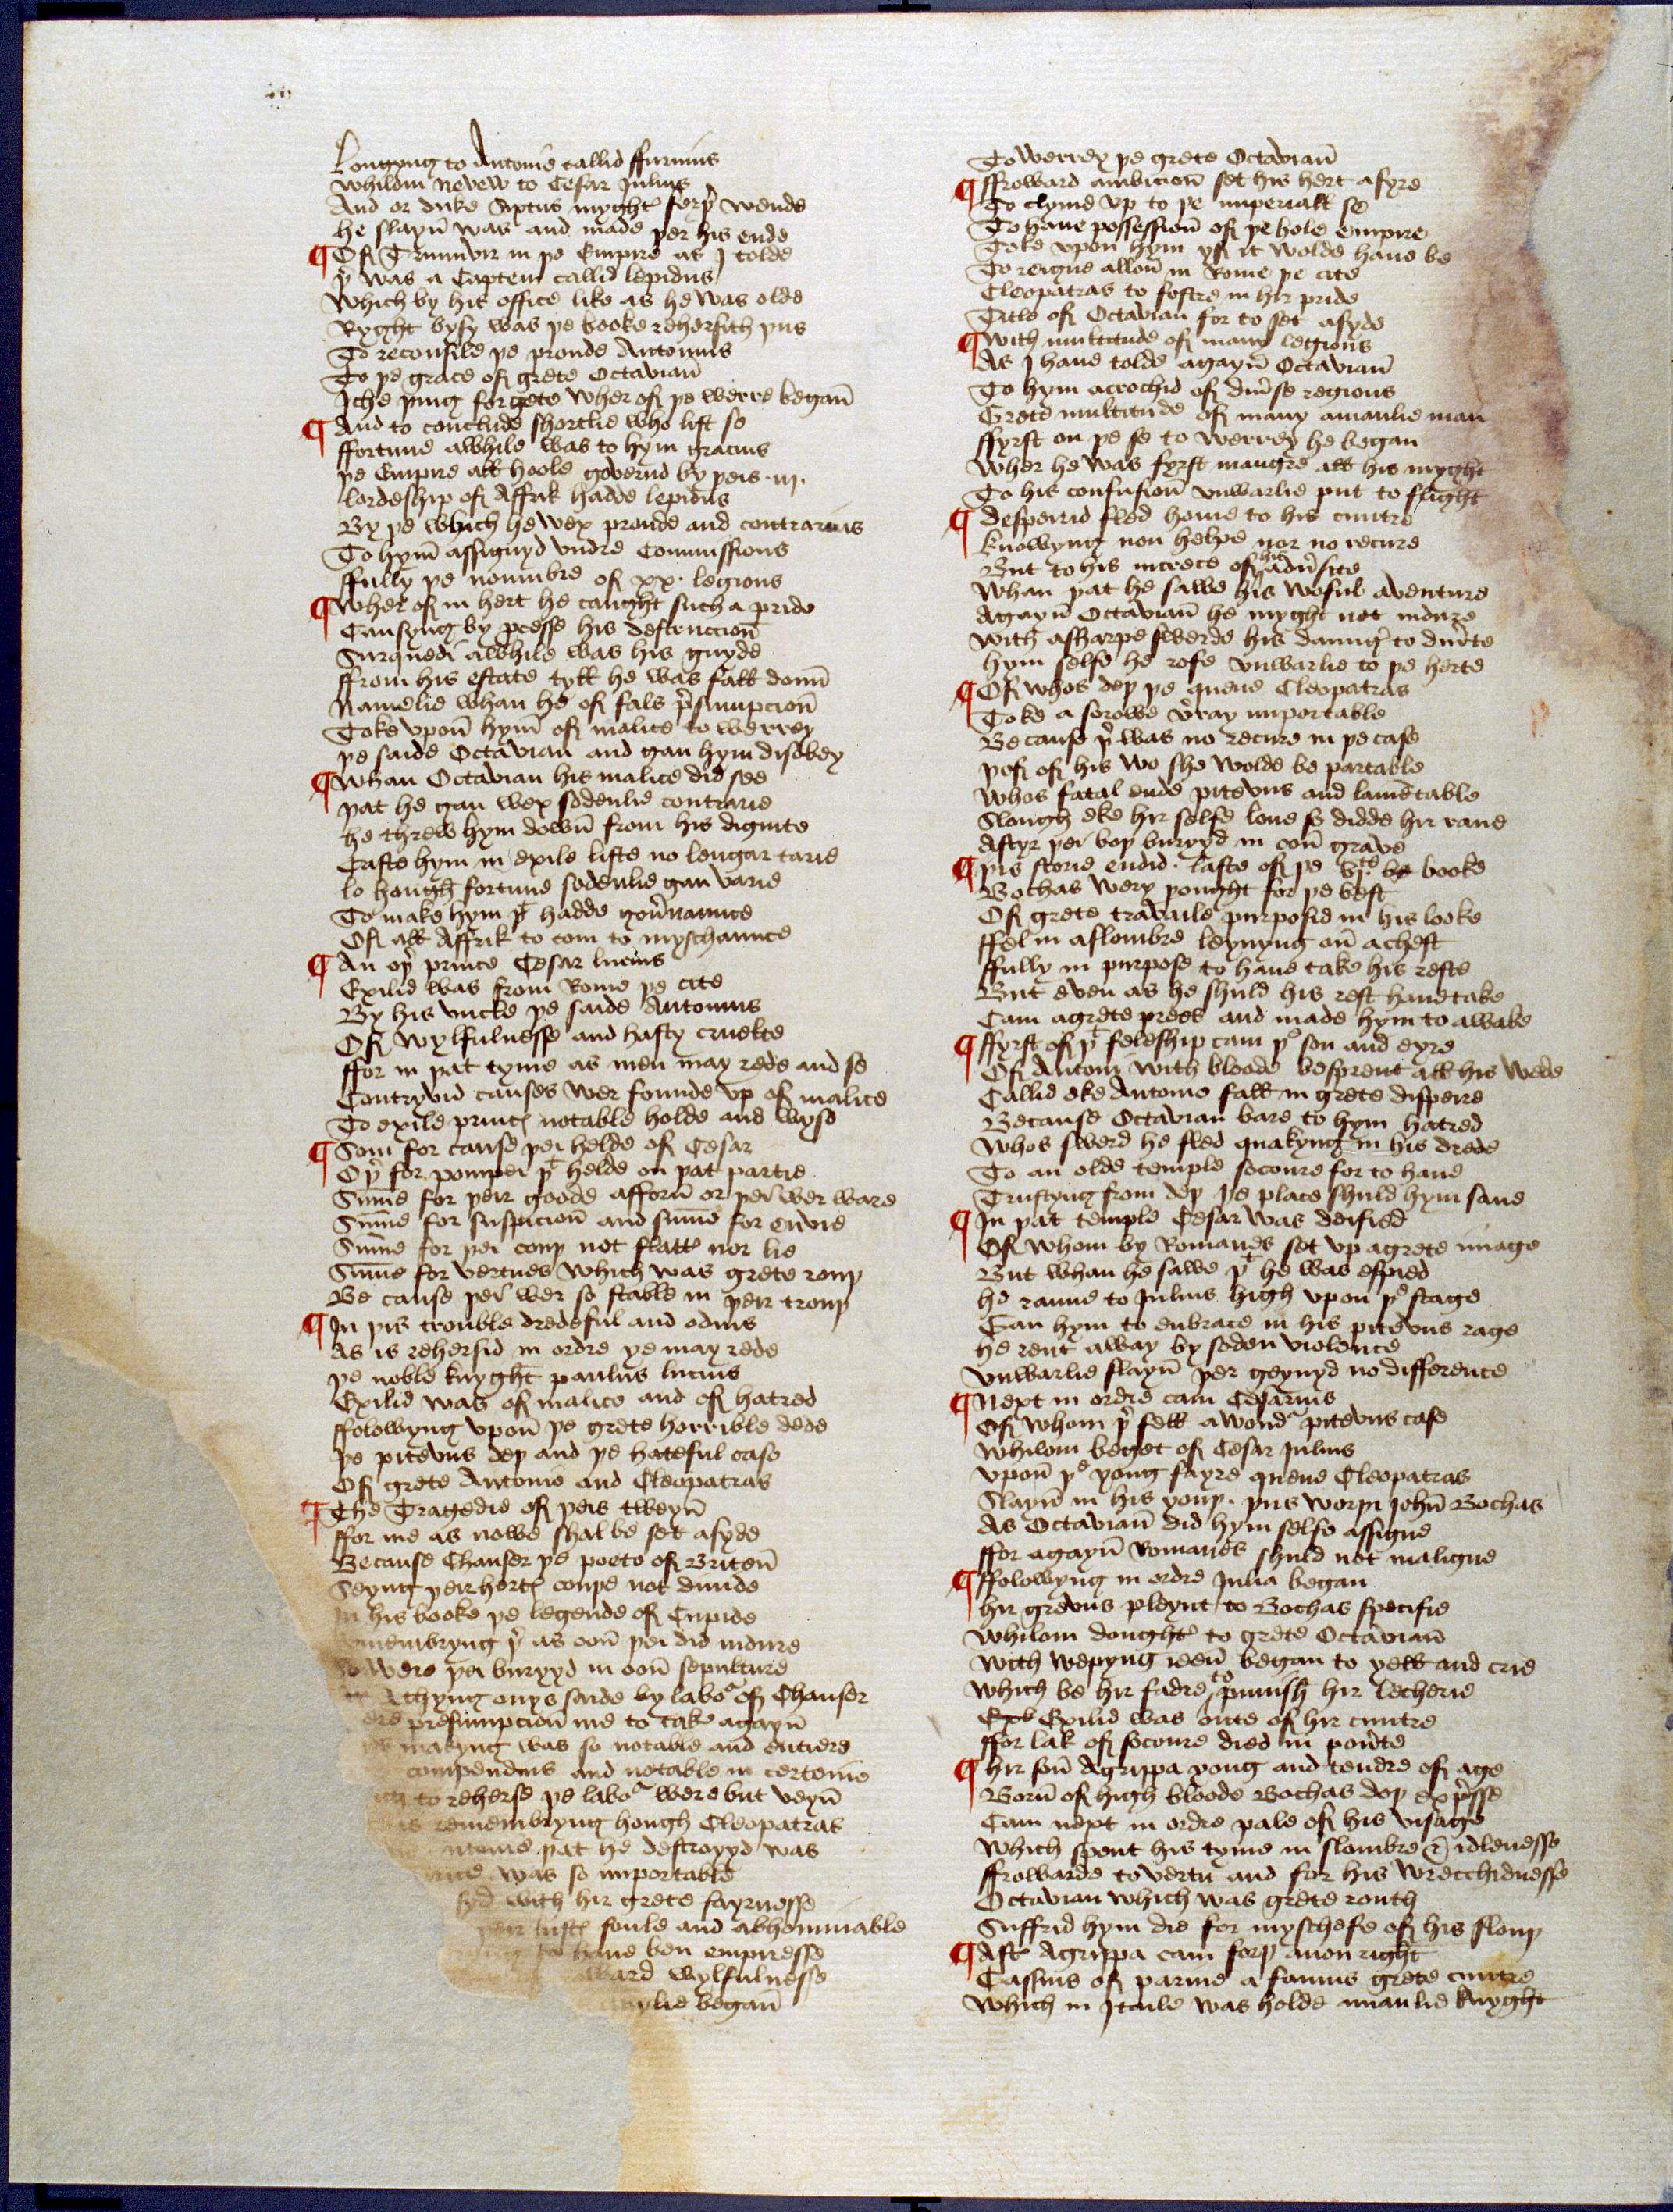 Longyng to Antonie callid ffurnius
Whilom nevew to Cesar Julius
And or duke Sixtus myght ferþer wende
he slayn was and made þer his ende
¶ Of Triumvir in þe Empire as J tolde
þer was a Captein callid lepidus
Which by his office like as he was olde
Ryght bysy was þe booke rehersith þus
To reconsile þe proude Antonius
To þe grace of grete Octavian
Iche þing forgete wher of þe werre began
¶ And to conclude shortlie who list se
ffortune awhile was to hym gracius
þe Empire all hoole governd by þeis .iij.
lordeship of Affrik hadde lepidus
By þe which he wex proude and contrarius
To hym assignyd vndre Commissions
ffully þe noumbre of xx. legions
¶ Wher of in hert he caught such a pride
Causyng by processe his destruccion
Surquedi awhile was his guyde
ffrom his estate tyll he was fall doun
Namelie whan he of fals presumpcion
Toke vpon hym of malice to werrey
þe saide Octavian and gan hym disobey
¶ Whan Octavian his malice did see
þat he gan wex sodenlie contrarie
he threw hym down from his dignite
Caste hym in exile liste no lengar tarie
lo hough fortune sodenlie gan varie
To make hym þt hadde governaunce
Of all Affrik to com to myschaunce
¶ An oþer prince Cesar lucius
Exilid was from Rome þe cite
By his vncle þe saide Antonius
Of wylfulnesse and hasty cruelte
ffor in þat tyme as men may rede and se
Contryvid causes wer founde vp of malice
To exile princes notable holde and wyse
¶ Som for cause þei helde of Cesar
Oþer for pompei þt helde on þat partie
Summe for þeir goode afforn or þei wer ware
Summe for suspicion and summe for envie
Summe for þei couþ not flatter nor lie
Summe for vertues which was grete rouþ
Be cause þei wer so stable in þeir trouþ
¶ In þis trouble dredeful and odius
As is rehersid in ordre ye may rede
þe noble knyght paulus lucius
Exilid was of malice and of hatred
ffolowyng vpon þe grete horrible dede
þe pitevus deþ and þe hateful case
Of grete Antonie and Cleopatras
¶ The Tragedie of þeis tweyn
ffor me as nowe shal be set asyde
Because Chauser þe poete of Briten
Seyng þeir hertes couþe not divide
In his booke þe legende of Cupide
Remembryng þer as oon þei did indure
So were þei buryyd in oon sepulture
A thyng onys saide by labor of Chauser
presumpcion me to take agayn
makyng was so notable and entiere
compendius and notable in certeine
to reherse þe labor were but veyn
remembryng hough Cleopatras
þat he destroyyd was
was so importable
with hir grete fayrnesse
þeir lustes foule and abhominable
to have ben empresse
wylfulnesse
began
To werrey þe grete Octavian
¶ ffroward ambicion set his hert afyre
To clyme vp to þe imperiall se
To have possession of þe hole empire
Toke vpon hym yf it wolde have be
To reigne allon in Rome þe cite
Cleopatras to fostre in hir pride
Title of Octavian for to set asyde
¶ With multitude of many legions
As J have tolde agayn Octavian
To hym acrochid of diverse regions
Grete multitude of many amanlie man
ffyrst on þe se to werrey he began
Wher he was fyrst maugre all his myght
To his confusion vnwarlie put to flight
¶ Despeirid fled home to his cuntre
knowyng non helpe nor no recure
But to his increce of his adversite
Whan þat he sawe his woful aventure
Agayn Octavian he myght not indure
With asharpe swerde his daunger to diverte
hym selfe he rofe vnwarlie to þe herte
¶ Of whos deþ þe quene Cleopatras
Toke a sorowe verray importable
Because þer was no recure in þe case
þof of his wo she wolde be partable
Whos fatal ende pitevus and lamentable
Slough eke hir selfe love so didde hir rave
Aftyr þei boþ buryyd in oon grave
¶ þis storie endid . laste of þe vj.te be booke
Bochas wery þought for þe best
Of grete travaile purposid in his looke
ffel in aslombre leynyng on a chest
ffully in purpose to have take his reste
But even as he shuld his rest have take
Cam agrete prees and made hym to awake
¶ ffyrst of þt feleship cam þe son and eyre
Of Antoni with bloode besprent all his wede
Callid eke Antonie fall in grete dispeire
Because Octavian bare to hym hatred
Whos swerd he fled quakyng in his drede
To an olde temple socoure for to have
Trustyng from deþ þe place shuld hym save
¶ In þat temple Cesar was deified
Of whom by Romanes set vp agrete image
But whan he sawe þt he was espied
he ranne to Julius high vpon þe stage
Gan hym to enbrace in his pitevus rage
he rent away by soden violence
vnwarlie slayn þer geynyd no difference
¶ Next in ordre cam Cesarius
Of whom þer fell awonder pitevus case
Whilom beget of Cesar Julius
vpon þe yong fayre quene Cleopatras
Slayn in his youþ . þus writþ John Bochas
As Octavian did hym selfe assigne
ffor agayn Romanes shuld not maligne
¶ ffolowyng in ordre Julia began
hir grevus pleynt to Bochas specifie
Whilom doughter to grete Octavian
With wepyng ieen began to yell and crie
Which be hir fadre to punish hir lecherie
Exl Exilid was oute of hir cuntre
ffor lak of socoure died in poverte
¶ hir son Agrippa yong and tendre of age
Born of high bloode Bochas doþ expresse
Cam next in ordre pale of his visage
Which spent his tyme in slombre & idlenesse
ffrowarde to vertu and for his wrecchidnesse
Octavian which was grete routh
Suffrid hym die for myschefe of his slouþ
¶ After Agrippa cam forþ anon right
Cassius of parme a famus grete cuntre
Which in Itaile was holde amanlie knyght